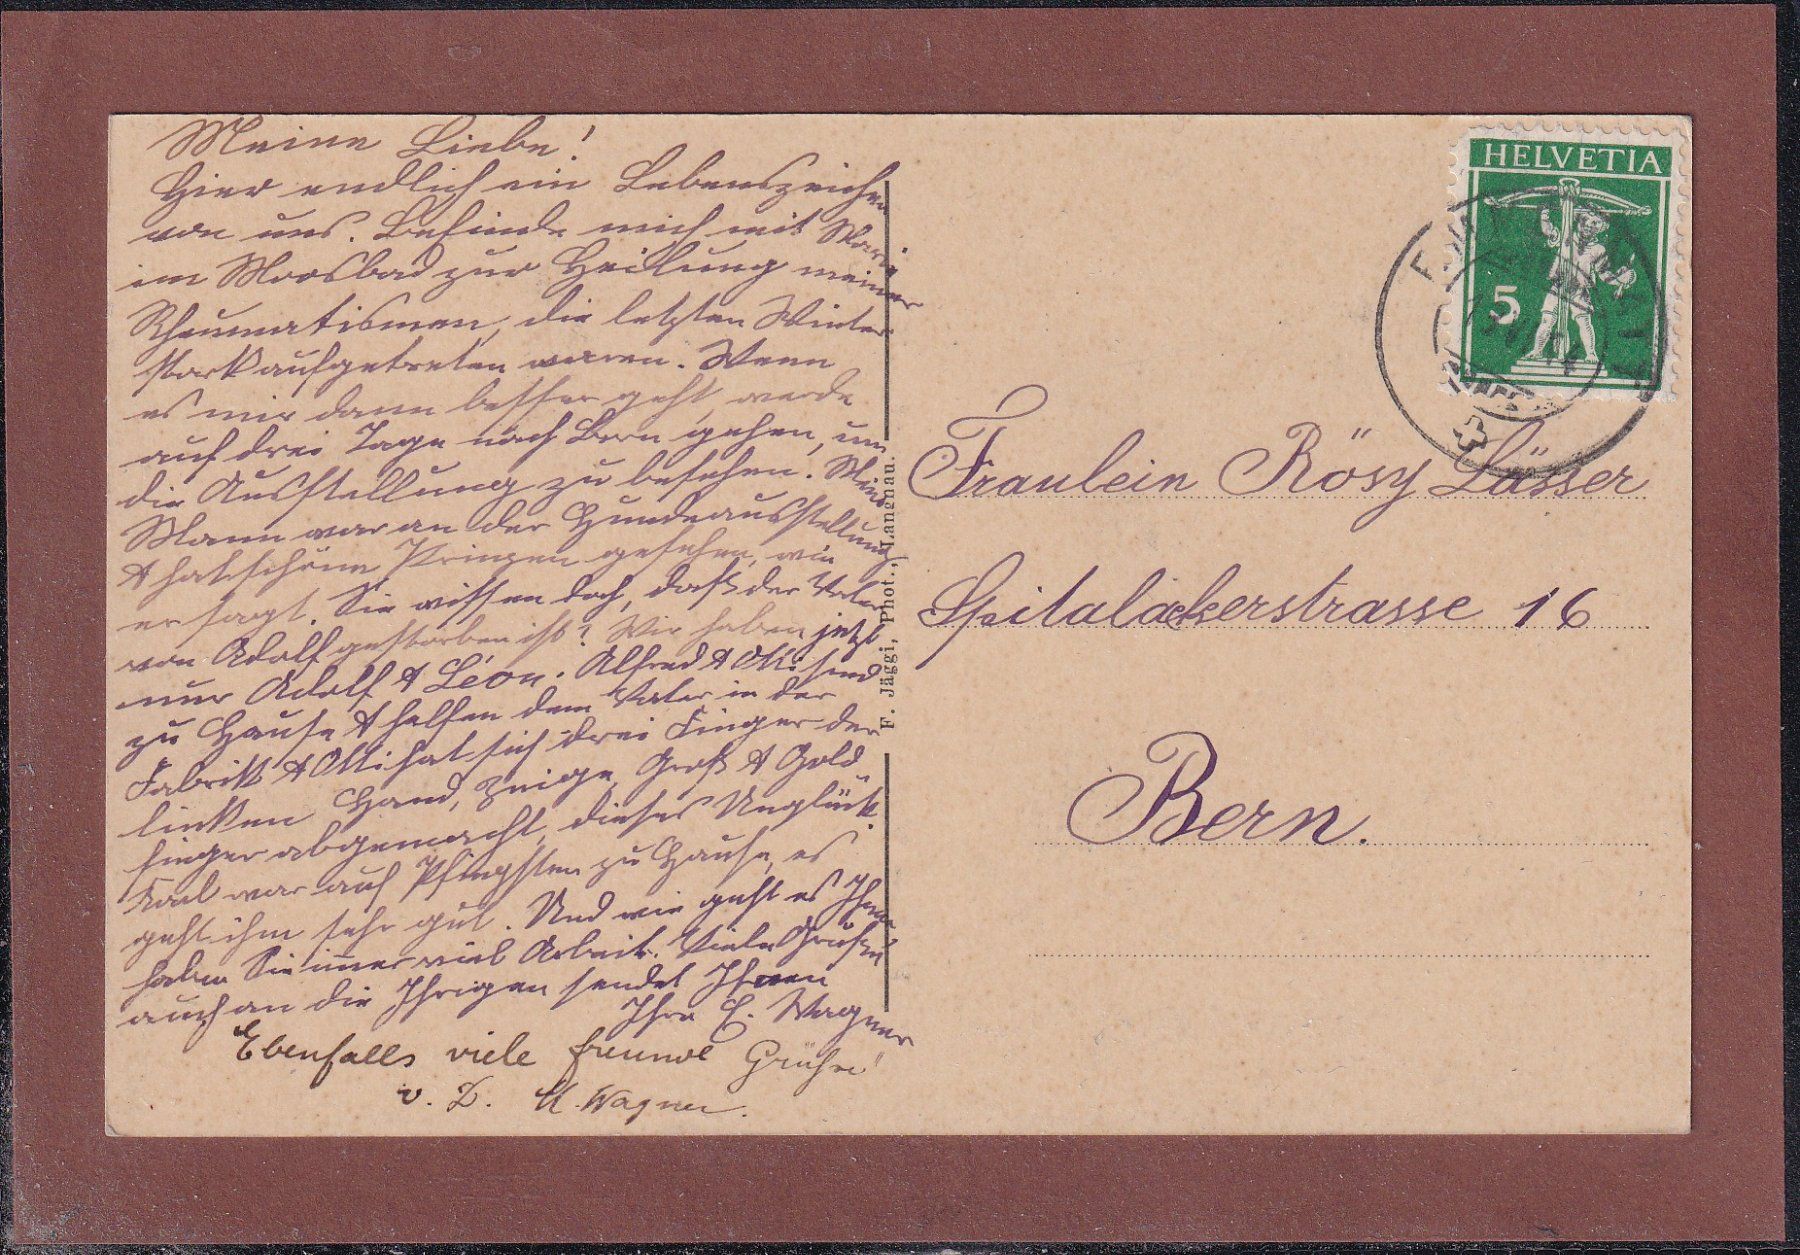 Meine Liebe!
Hier endlich ein Lebenszeichen
von uns. Befinde mich mit Marie
im Moosbad zur Heilung meiner
Rheumatismen, die letzten Winter
stark aufgetreten waren. Wenn
es mir dann besser geht, werde
auf drei Tage nach Bern gehen, um
die Ausstellung zu besehen. Mein
Mann war an der Hundeausstellung
& hat schöne Prinzen gesehen, wie
er sagt. Sie wissen doch, daß der Vater
von Adolf gestorben ist? Wir haben jetzt
nur Adolf & Léon. Alfred & Otti sind
zu Hause & helfen dem Vater in der
Fabrik & Otti hat sich drei Finger der
linken Hand, Zeige, Groß & Gold
finger abgemacht, dieses Unglück.
Karl war auf Pfingsten zu Hause, es
geht ihm sehr gut. Und wie geht es Ihnen
haben Sie immer viel Arbeit. Viele Grüße
auch an die Ihrigen sendet Ihnen
Ihre E. Wagner
Ebenfalls viele freundl Grüße!
v. D. M. Wagner.
F. Jäggi, Phot., Langnau.
HELVETIA
5
Fraulein Rösy Lässer
Spitalackerstrasse 16
Bern.